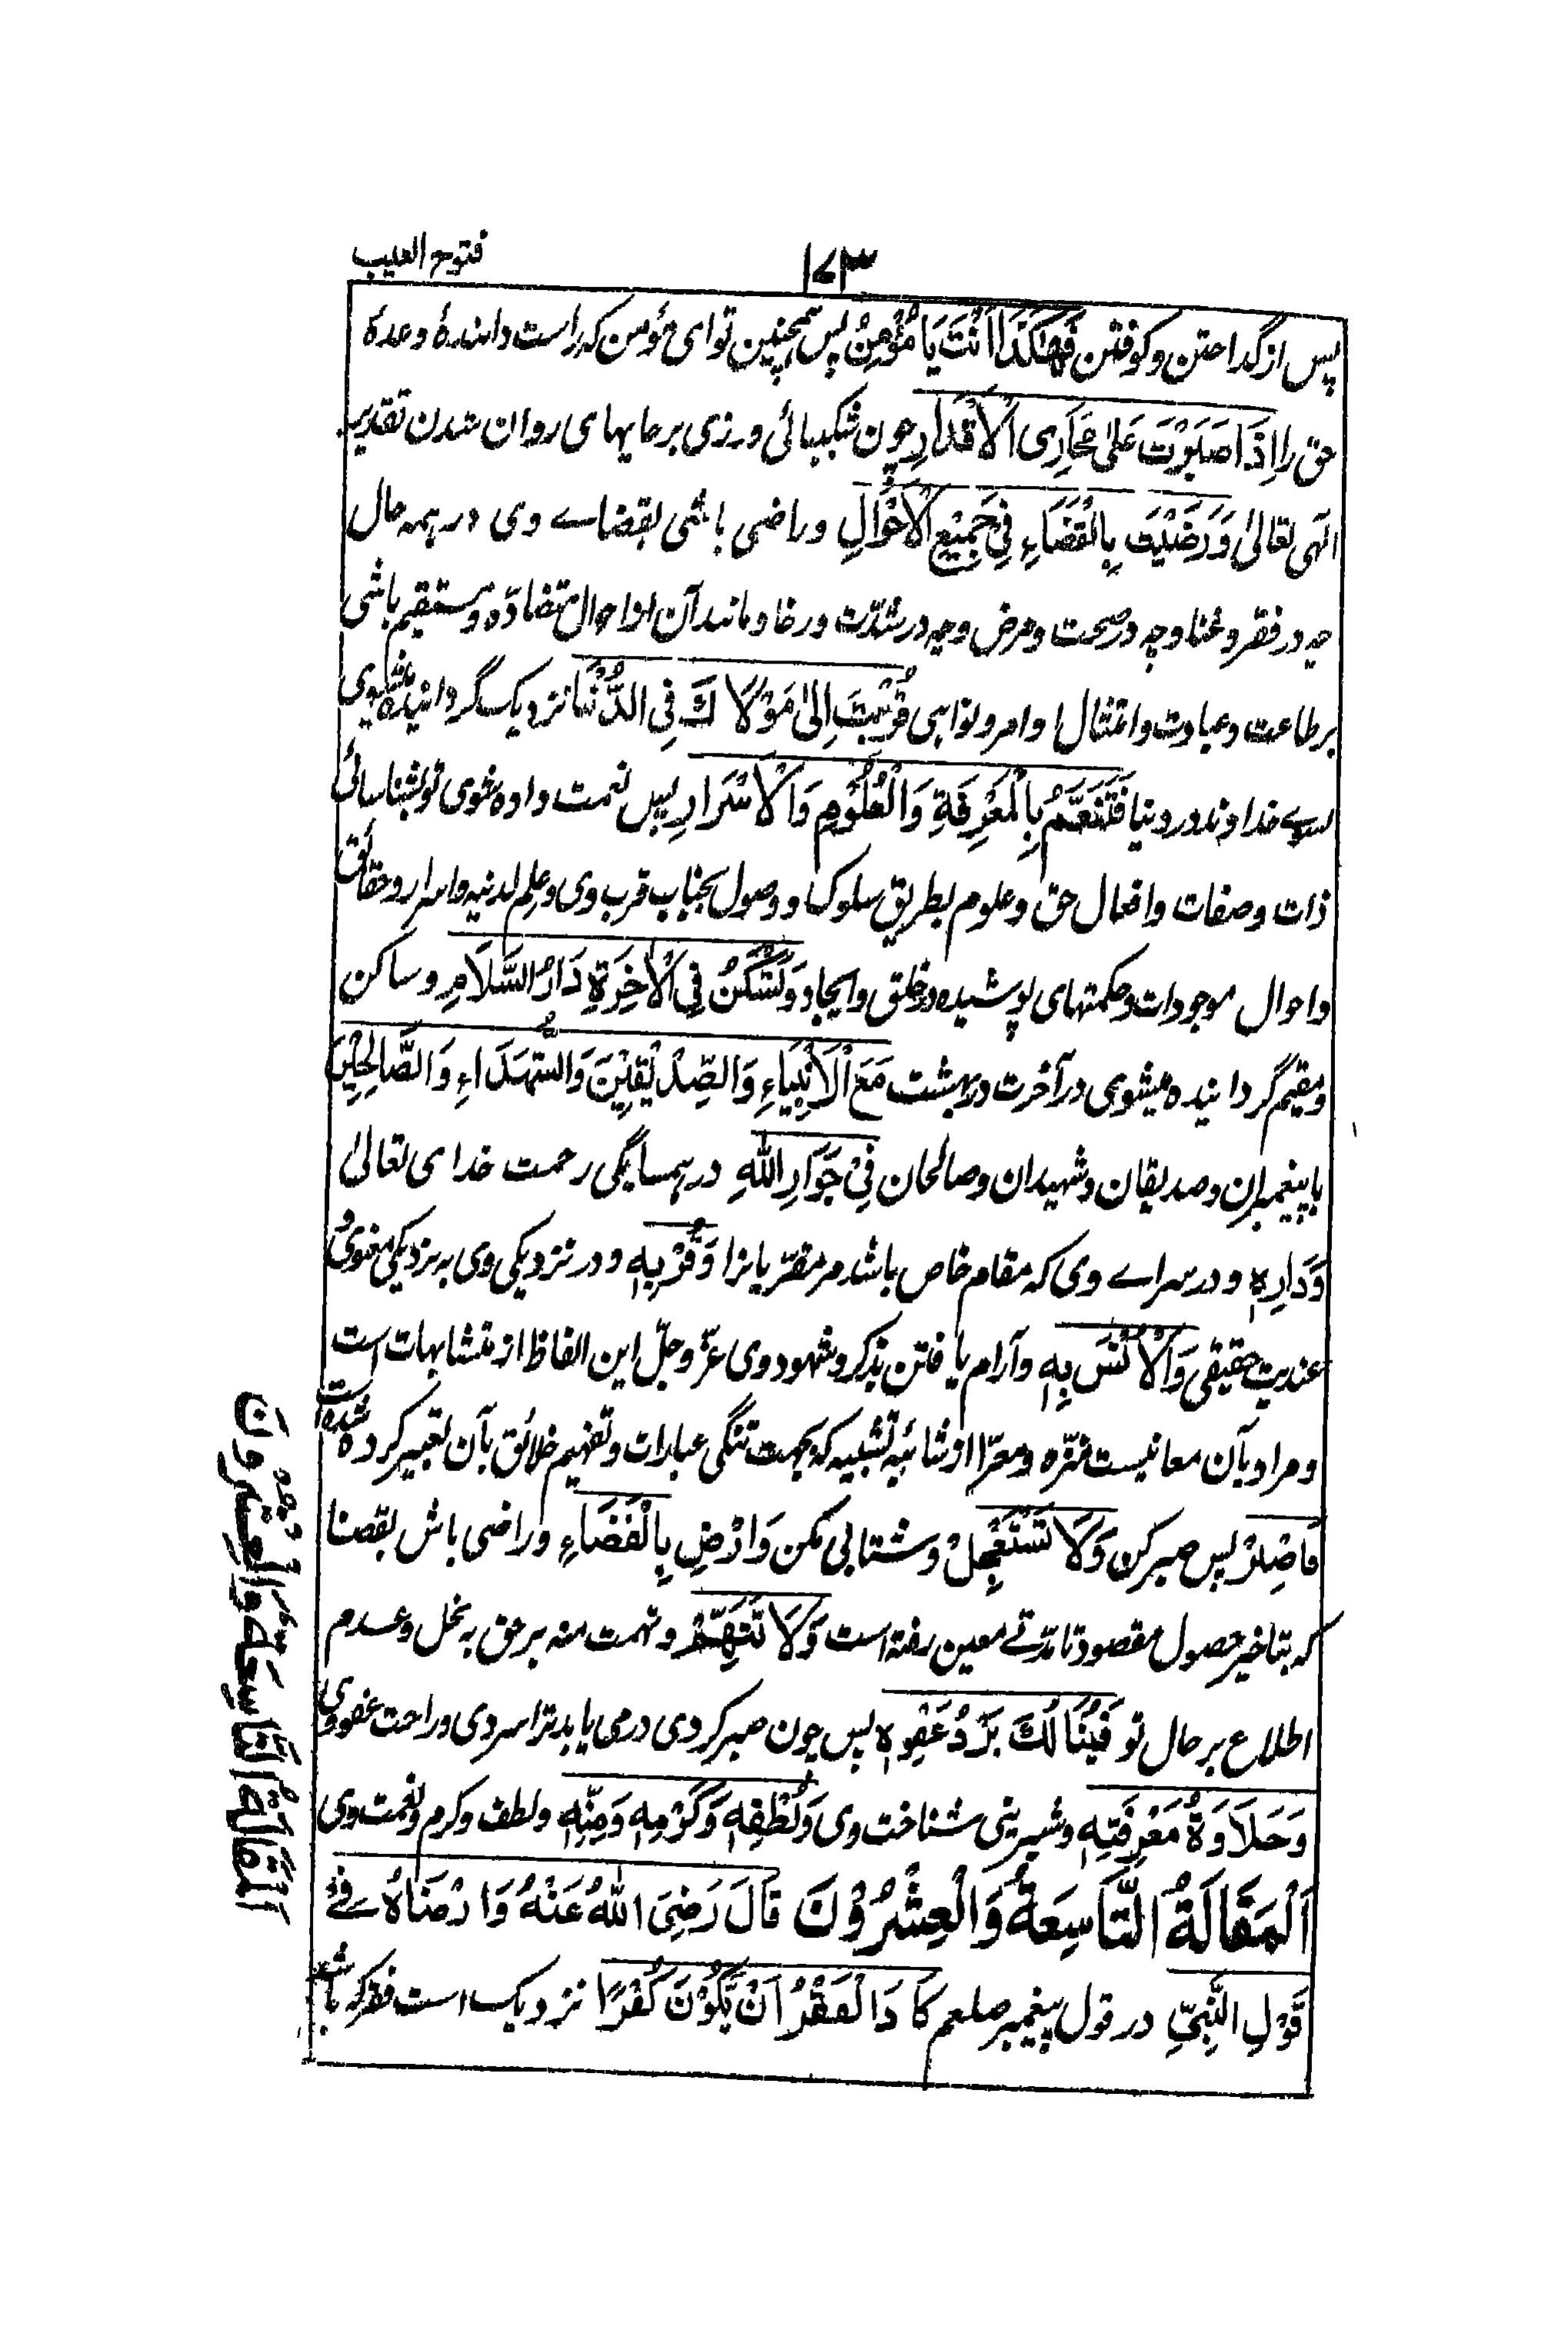 ۱۷۳
فتوح الغیب
پس از گداختن و کوفتن فَهٰكَذَا اَنْتَ يَا مُؤْمِنُ پس همچنین تو ای مؤمن که راست دانندهٔ وعدهٔ
حق را اِذَا صَبَرْتَ عَلىٰ مَجَارِى الْاَقْدَارِ چون شکیبائی ورزی بر جایهای روان شدن تقدیر
الٰهی تعالیٰ وَرَضِيْتَ بِالْقَضَاءِ فِيْ جَمِيْعِ الْاَحْوَالِ و راضی باشی بقضاے وی در همه حال
چه در فقر و غنا و چه در صحت و مرض و چه در شدّت و رخا و مانند آن از احوال متضادّه و مستقیم باشی
بر طاعت و عبادت و امتثال اوامر و نواہی قُرِّبْتَ اِلىٰ مَوْلَاكَ فِى الدُّنْيَا نزدیک گردانیده میشوی
بسوے خداوند در دنیا فَتُنَعَّمُ بِالْمَعْرِفَةِ وَالْعُلُوْمِ وَالْاَسْرَارِ پس نعمت داده شوی تو بشناسائی
ذات و صفات و افعال حق و علوم بطریق سلوک و وصول بجناب قرب وی و علم لدنیه و اسرار و حقائق
و احوال موجودات و حکمتهای پوشیده در خلق و ایجاد وَتُسْكَنُ فِى الْاٰخِرَةِ دَارَ السَّلَامِ و ساکن
و مقیم گردانیده میشوی در آخرت در بهشت مَعَ الْاَنْبِيَاءِ وَالصِّدِّيْقِيْنَ وَالشُّهَدَاءِ وَالصَّالِحِيْنَ
با پیغمبران و صدیقان و شهیدان و صالحان فِيْ جَوَارِ اللّٰهِ در همسایگی رحمت خدای تعالیٰ
وَدَارِهٖ و در سراے وی که مقام خاص باشد مر مقرّبانرا وَقُرْبِهٖ و در نزدیکی وی به نزدیکی معنوی و
عندیت حقیقی وَالْاُنْسَ بِهٖ و آرام یافتن بذکر و شهود وی عزّ و جلّ این الفاظ از متشابهات است
و مراد بآن معانیست منزّه و معرّا از شائبهٔ تشبیه که بجهت تنگی عبارات و تفهیم خلائق بآن تعبیر کرده شده است
فَاصْبِرْ پس صبر کن وَلَا تَسْتَعْجِلْ و شتابی مکن وَارْضِ بِالْقَضَاءِ و راضی باش بقضا
که بتاخیر حصول مقصود تا مدّتے معین رفته است وَلَا تَتَّهِمْ و تهمت منه بر حق به بخل و عدم
اطلاع بر حال تو فَيَنَالُكَ بَرْدُ عَفْوِهٖ پس چون صبر کردی درمی یابد ترا سردی و راحت عفو وی
وَحَلَاوَةُ مَعْرِفَتِهٖ و شیرینی شناخت وی وَلُطْفِهٖ وَكَرَمِهٖ وَمِنَّتِهٖ و لطف و کرم و نعمت وی
اَلْمَقَالَةُ التَّاسِعَةُ وَالْعِشْرُوْنَ قَالَ رَضِىَ اللّٰهُ عَنْهُ وَاَرْضَاهُ فِے
قَوْلِ النَّبِيِّ در قول پیغمبر صلعم كَادَ الْفَقْرُ اَنْ يَّكُوْنَ كُفْرًا نزدیک است فقر که باشد
اَلْمَقَالَةُ التَّاسِعَةُ وَالْعِشْرُوْنَ